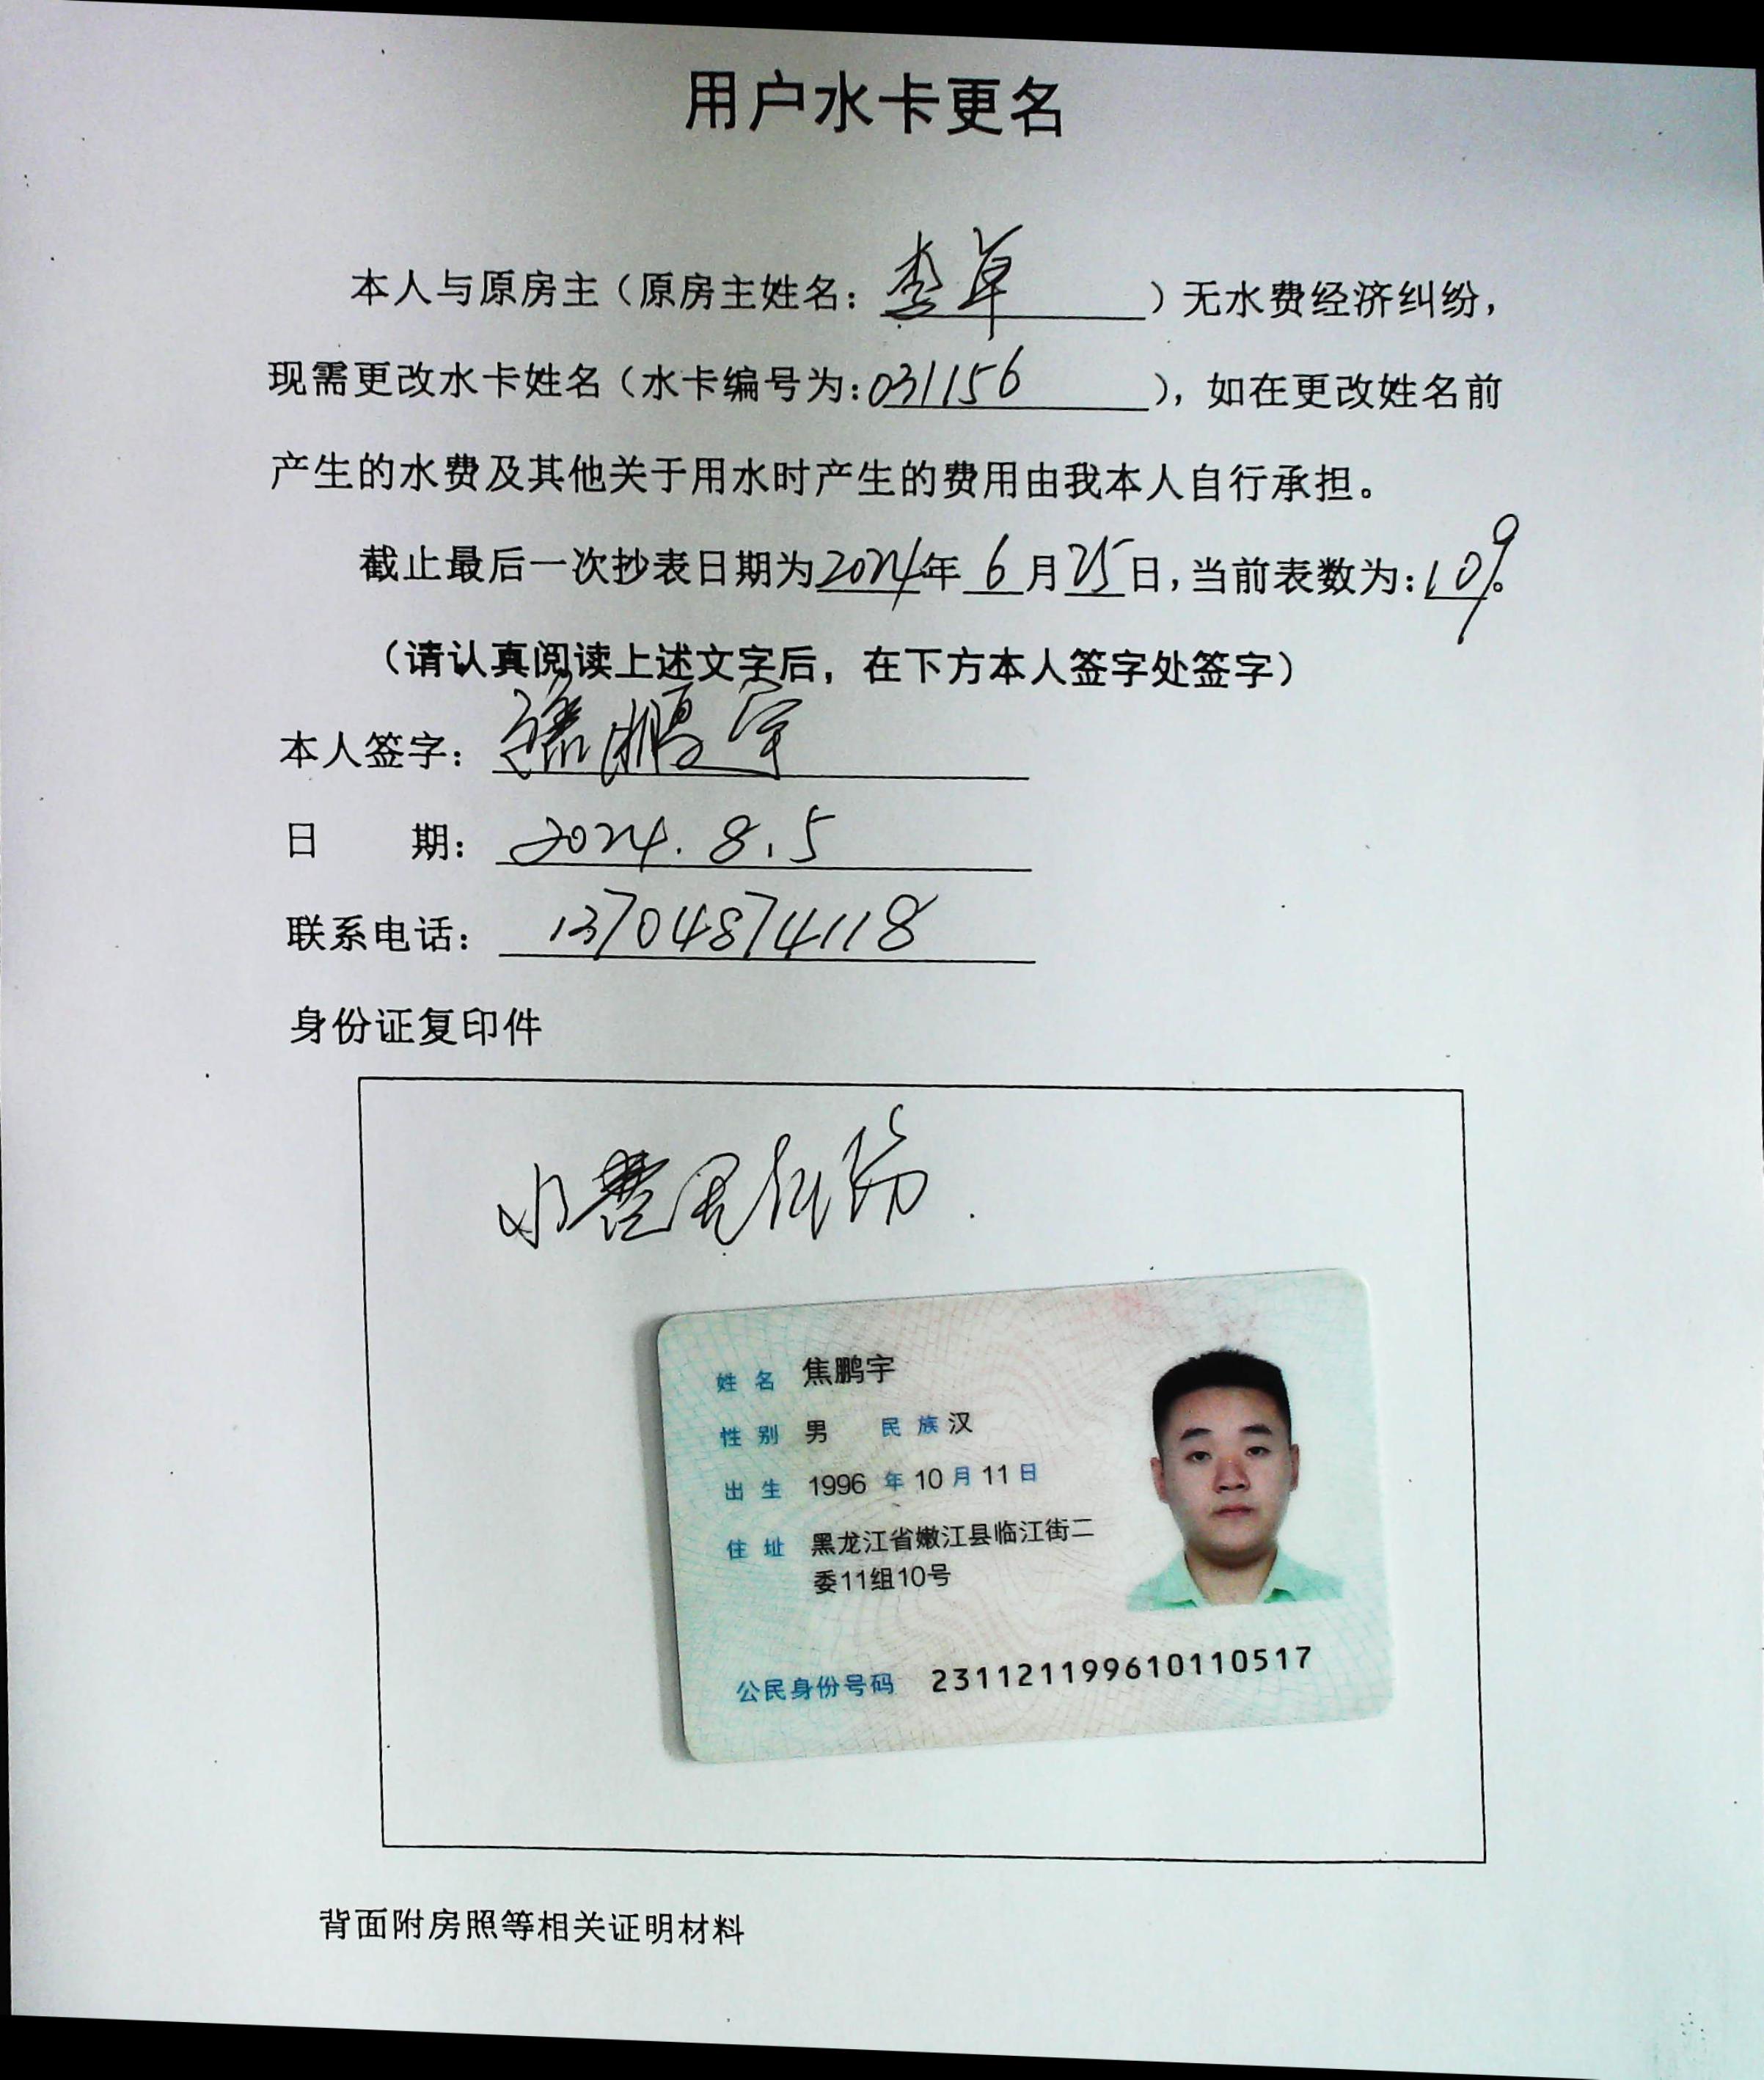 用户水卡更名
本人与原房主（原房主姓名：李草）无水费经济纠纷，
现需更改水卡姓名（水卡编号为：031156），如在更改姓名前
产生的水费及其他关于用水时产生的费用由我本人自行承担。
截止最后一次抄表日期为2024年6月25日，当前表数为：109。
（请认真阅读上述文字后，在下方本人签字处签字）
本人签字：焦鹏宇
日 期：2024.8.5
联系电话：13704874118
身份证复印件
水费无纠纷.
姓名 焦鹏宇
性别 男 民族 汉
出生 1996 年 10 月 11 日
住址 黑龙江省嫩江县临江街二
委11组10号
公民身份号码 231121199610110517
背面附房照等相关证明材料